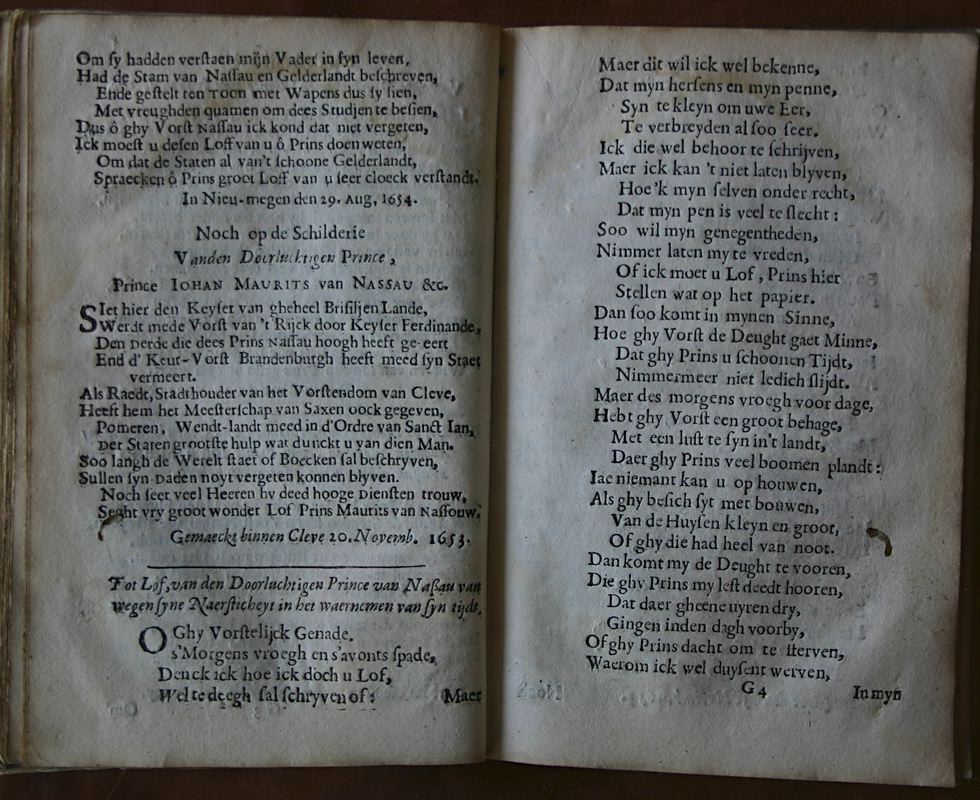 Om sy hadden verstaen mijn Vader in syn leven,
Had de Stam van Nassau en Gelderlandt beschreven,
Ende gestelt ten Toon met Wapens dus sy sien,
Met vreughden quamen om dees Studjen te besien,
Dus ô ghy Vorst Nassau ick kond dat niet vergeten,
Ick moest u desen Loff van u ô Prins doen weten,
Om dat de Staten al van't schoone Gelderlandt,
Spraecken ô Prins groot Loff van u seer cloeck verstandt.
In Nieu-megen den 29. Aug, 1654.
Noch op de Schilderie
Vanden Doorluchtigen Prince,
Prince IOHAN MAURITS van NASSAU &c.
SIet hier den Keyser van gheheel Brisiljen Lande,
Werdt mede Vorst van 't Rijck door Keyser Ferdinande,
Den Derde die dees Prins Nassau hoogh heeft ge-eert
End d' Keur-Vorst Brandenburgh heeft meed syn Staet
vermeert.
Als Raedt, Stadthouder van het Vorstendom van Cleve,
Heeft hem het Meesterschap van Saxen oock gegeven,
Pomeren, Wendt-landt meed in d'Ordre van Sanct Ian,
Der Staten grootste hulp wat dunckt u van dien Man.
Soo langh de Werelt staet of Boecken sal beschryven,
Sullen syn Daden noyt vergeten konnen blyven.
Noch seer veel Heeren by deed hooge Diensten trouw,
Seght vry groot wonder Lof Prins Maurits van Nassouw.
Gemaeckt binnen Cleve 20. Novemb. 1653.
Tot Lof, van den Doorluchtigen Prince van Nassau van
wegen syne Naersticheyt in het waernemen van syn tijdt.
O Ghy Vorstelijck Genade.
s'Morgens vroegh en s'avonts spade,
Denck ick hoe ick doch u Lof,
Wel te deegh sal schryven of:
Maer
Maer dit wil ick wel bekenne,
Dat myn hersens en myn penne,
Syn te kleyn om uwe Eer,
Te verbreyden al soo seer.
Ick die wel behoor te schrijven,
Maer ick kan 't niet laten blyven,
Hoe 'k myn selven onder recht,
Dat myn pen is veel te slecht:
Soo wil myn genegentheden,
Nimmer laten my te vreden,
Of ick moet u Lof, Prins hier
Stellen wat op het papier.
Dan soo komt in mynen Sinne,
Hoe ghy Vorst de Deught gaet Minne,
Dat ghy Prins u schoonen Tijdt,
Nimmermeer niet ledich slijdt.
Maer des morgens vroegh voor dage,
Hebt ghy Vorst een groot behage,
Met een lust te syn in't landt,
Daer ghy Prins veel boomen plandt:
Iae niemant kan u op houwen,
Als ghy besich syt met bouwen,
Van de Huysen kleyn en groot,
Of ghy die had heel van noot.
Dan komt my de Deught te vooren,
Die ghy Prins my lest deedt hooren,
Dat daer gheene uyren dry,
Gingen inden dagh voorby,
Of ghy Prins dacht om te sterven,
Waerom ick wel duysent werven,
G 4
In myn